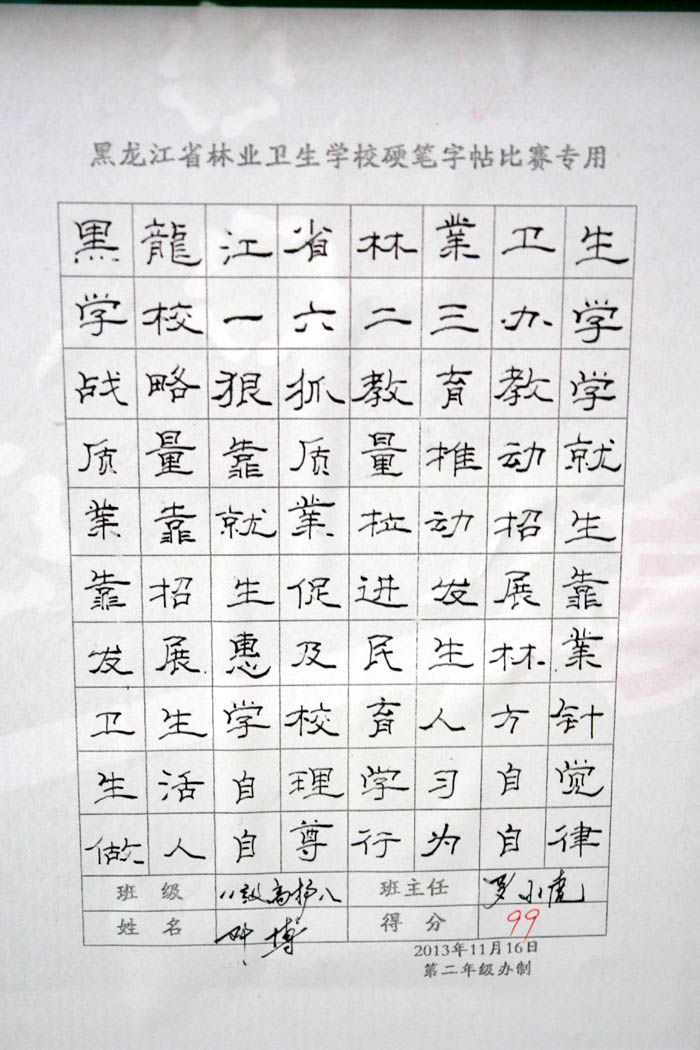 黑龙江省林业卫生学校硬笔字帖比赛专用
黑龍江省林業卫生
学校一六二三办学
战略狠抓教育教学
质量靠质量推动就
業靠就業拉动招生
靠招生促进发展靠
发展惠及民生林業
卫生学校育人方针
生活自理学习自觉
做人自尊行为自律
班级 班主任 罗小虎
姓名 博 得分 99
2013年11月16日
第二年级办制